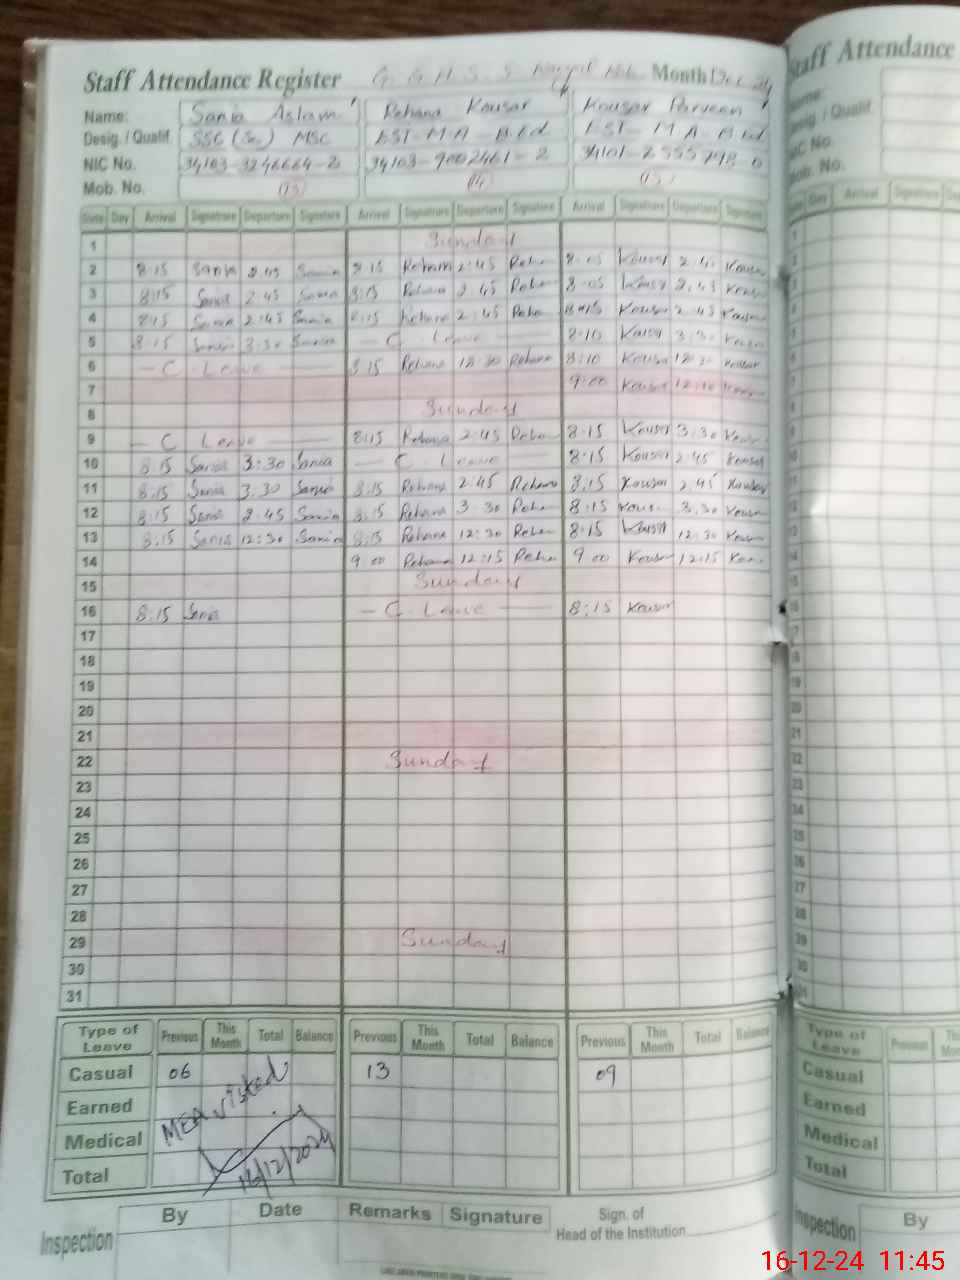 Staff Attendance Register G. G. H. S. S Month Dec 24
Name: Sania Aslam Rehana Kousar Kousar Parveen
Desig. / Qualif. SSC (Sc) MSC EST M A - B.Ed EST - M A - B.Ed
NIC No. 34103-3246664-2 34103-9002461-2 34101-2555798-0
Mob. No. (13) (14) (15)
Date Day Arrival Signature Departure Signature Arrival Signature Departure Signature Arrival Signature Departure Signature
1 Sunday
2 8:15 Sania 2:45 Sania 8:15 Rehana 2:45 Reha Kousar 2:45 Kousar
3 8:15 Sania 2:45 Sania 8:15 Rehana 2:45 Reha 8:05 Kousar 2:45 Kousar
4 8:15 Sania 2:45 Sania 8:15 Rehana 2:45 Reha 8:15 Kousar 2:45 Kousar
5 8:15 Sania 3:30 Sania — C Leave — 8:10 Kousar 3:30 Kousar
6 — C Leave — 8:15 Rehana 12:30 Rehana 8:10 Kousar 12:30 Kousar
7 9:00 Kousar 12:10 Kousar
8 Sunday
9 — C Leave — 8:15 Rehana 2:45 Reha 8:15 Kousar 3:30 Kousar
10 8:15 Sania 3:30 Sania — C Leave — 8:15 Kousar 2:45 Kousar
11 8:15 Sania 3:30 Sania 8:15 Rehana 2:45 Rehana 8:15 Kousar 2:45 Kousar
12 8:15 Sania 2:45 Sania 8:15 Rehana 3:30 Reha 8:15 Kousar 3:30 Kousar
13 8:15 Sania 12:30 Sania 8:15 Rehana 12:30 Reha 8:15 Kousar 12:30 Kousar
14 9:00 Rehana 12:15 Reha 9:00 Kousar 12:15 Kousar
15 Sunday
16 8:15 Sania — C Leave — 8:15 Kousar
17
18
19
20
21
22 Sunday
23
24
25
26
27
28
29 Sunday
30
31
Type of Leave Previous This Month Total Balance Previous This Month Total Balance Previous This Month Total Balance
Casual 06 13 09
Earned
Medical
Total
MEA visited
16/12/2024
Inspection By Date Remarks Signature Sign. of Head of the Institution
Staff Attendance
Name:
Desig. / Qualif.
NIC No.
Mob. No.
Day Arrival Signature
Type of Leave Previous
Casual
Earned
Medical
Total
Inspection By
16-12-24 11:45